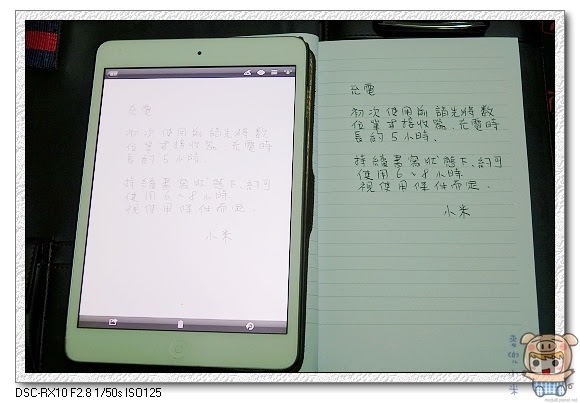 充電
初次使用前請先將數
位筆或接收器.充電時
長約5小時.
持續書寫狀態下.約可
使用6~8小時
視使用條件而定.
小米
充電
初次使用前 請先將 數
位筆或接收器.充電時
長約5小時.
持續書寫狀態下.約可
使用6~8小時
視使用條件而定.
小米
DSC-RX10 F2.8 1/50s ISO125